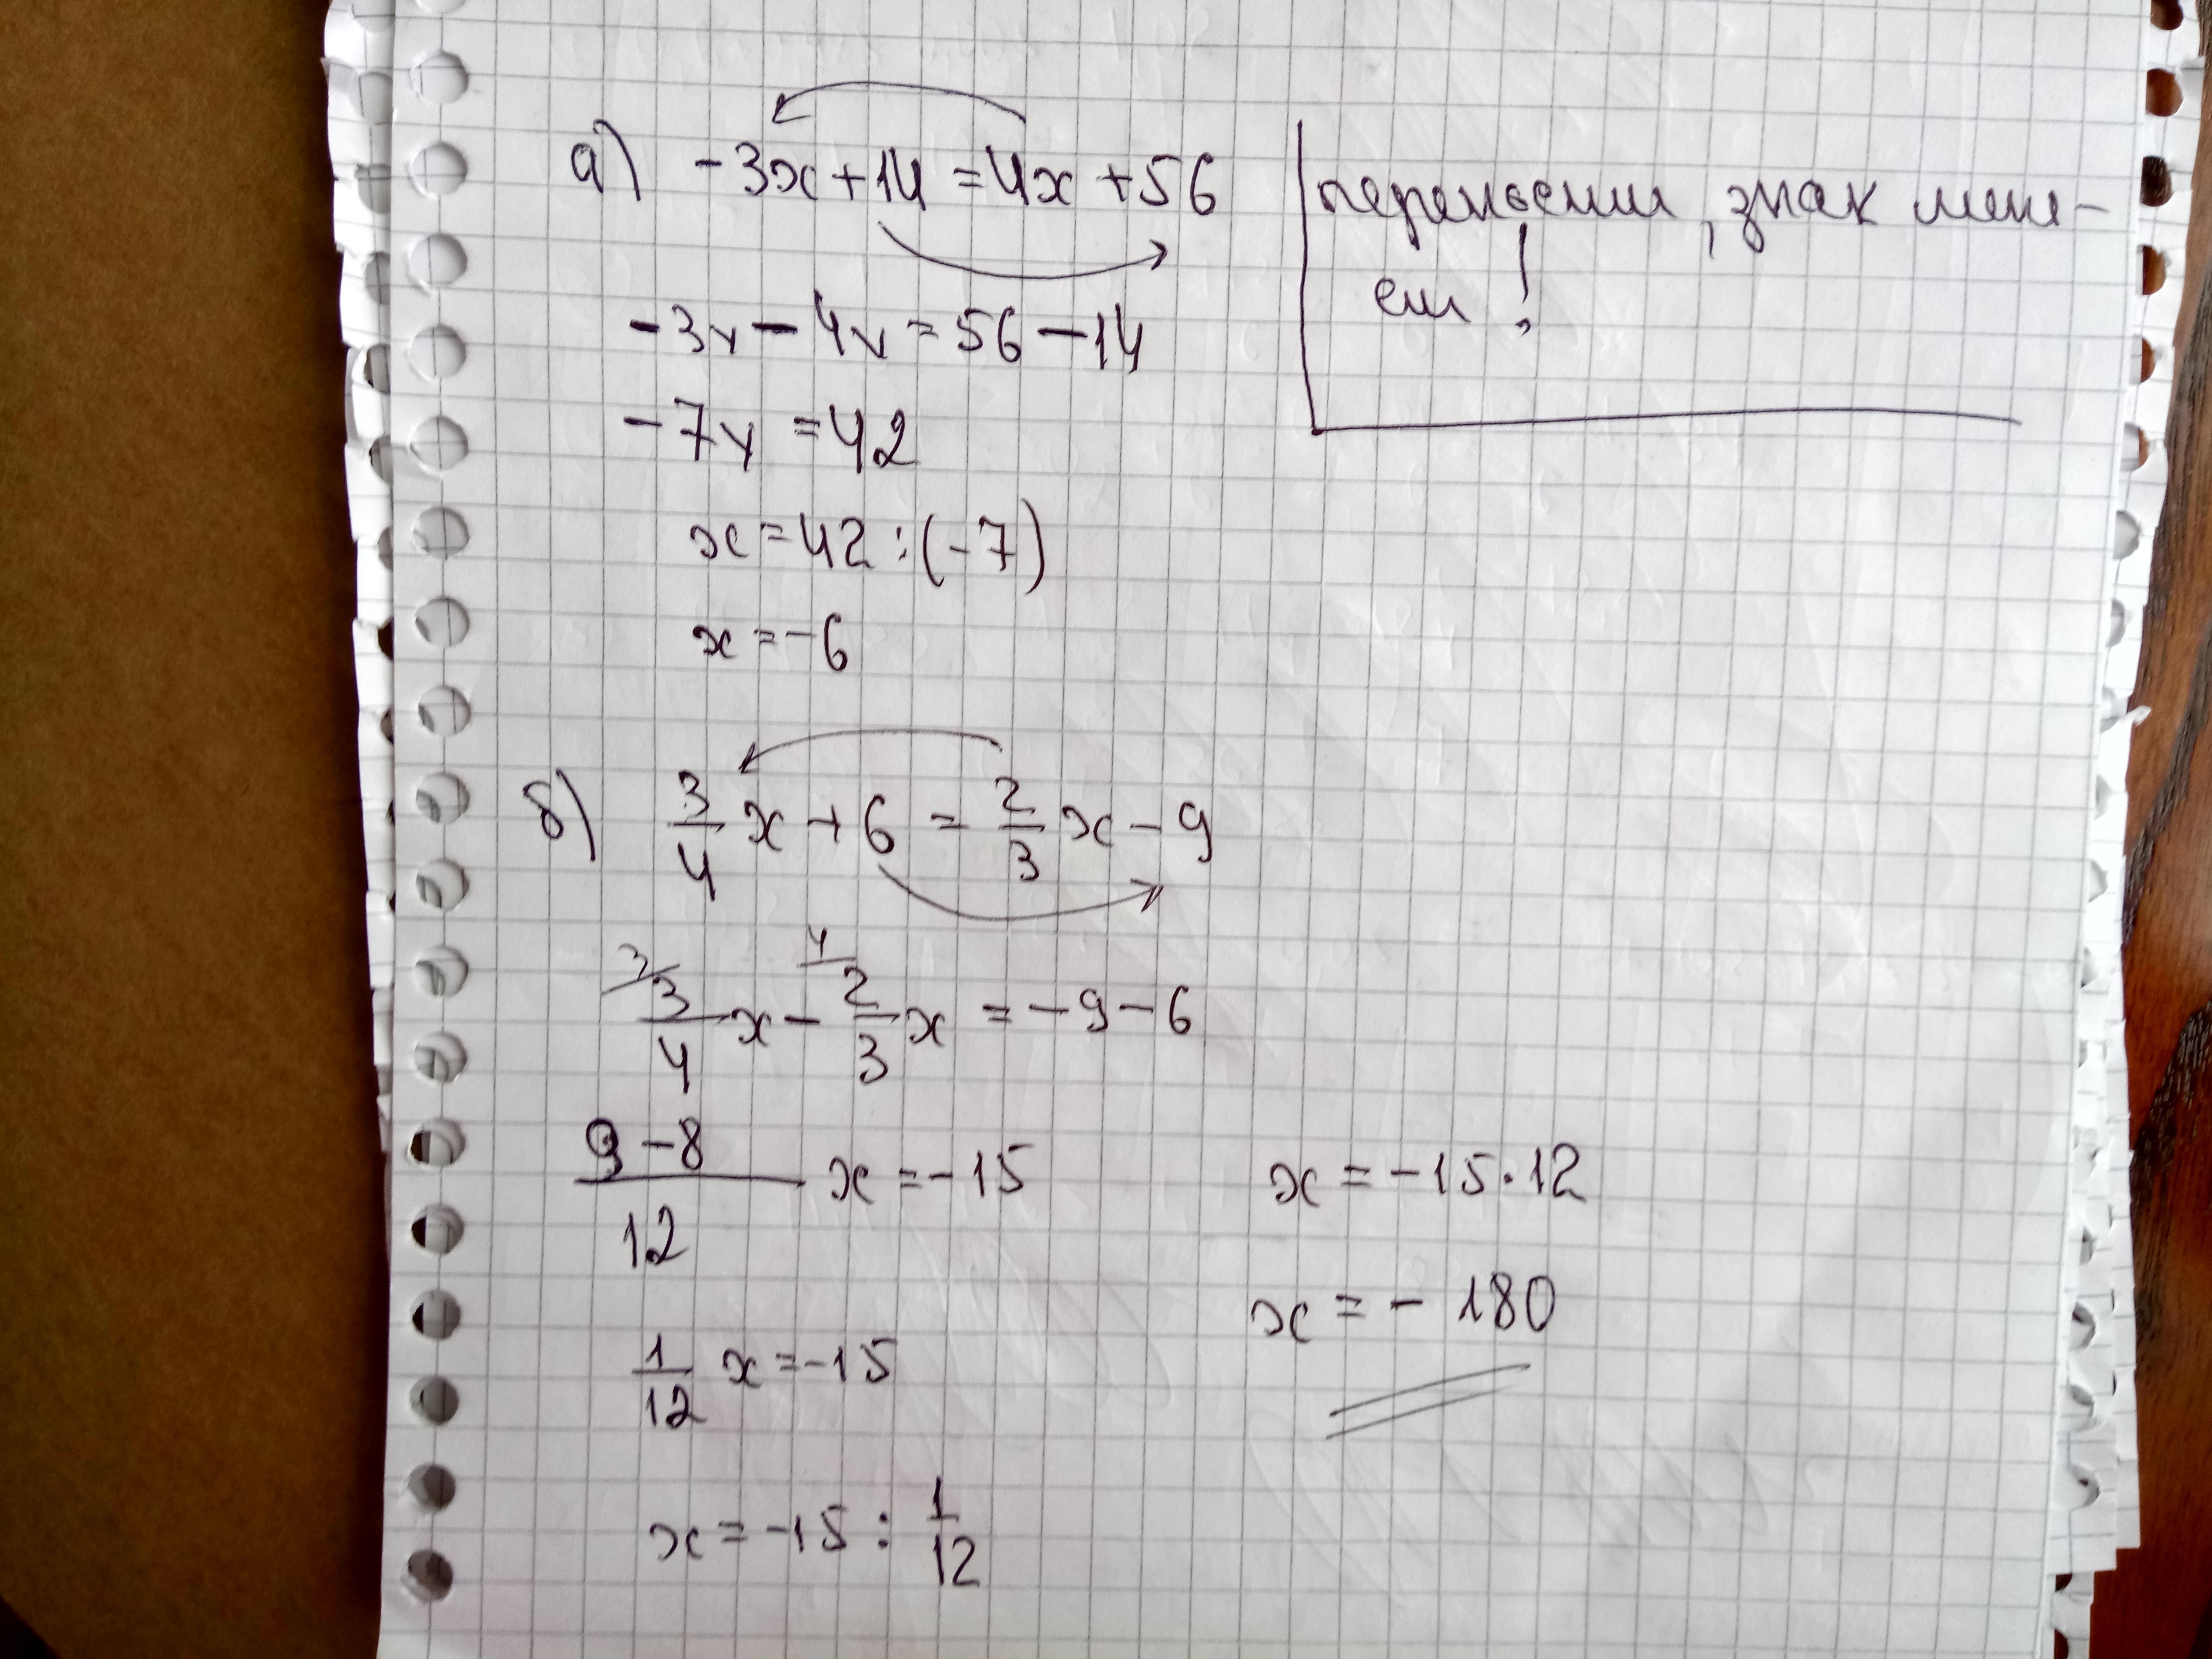 а) -3x+14=4x+56
переносим, знак меня-
ем!
-3x-4x=56-14
-7x=42
x=42:(-7)
x=-6
б) 3/4 x+6=2/3 x-9
3/ 3/4 x - 4/ 2/3 x = -9-6
(9-8)/12 x=-15
1/12 x=-15
x=-15:1/12
x=-15·12
x=-180